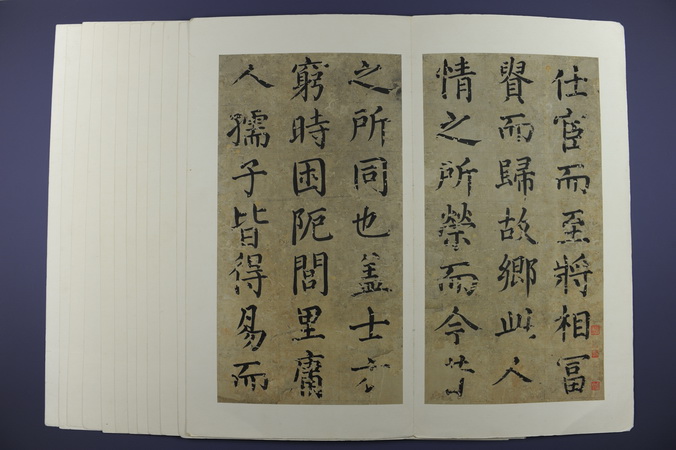 仕宦而至將相冨
貴而歸故鄉此人
情之所榮而今昔
之所同也盖士方
窮時困阨閭里庸
人孺子皆得易而